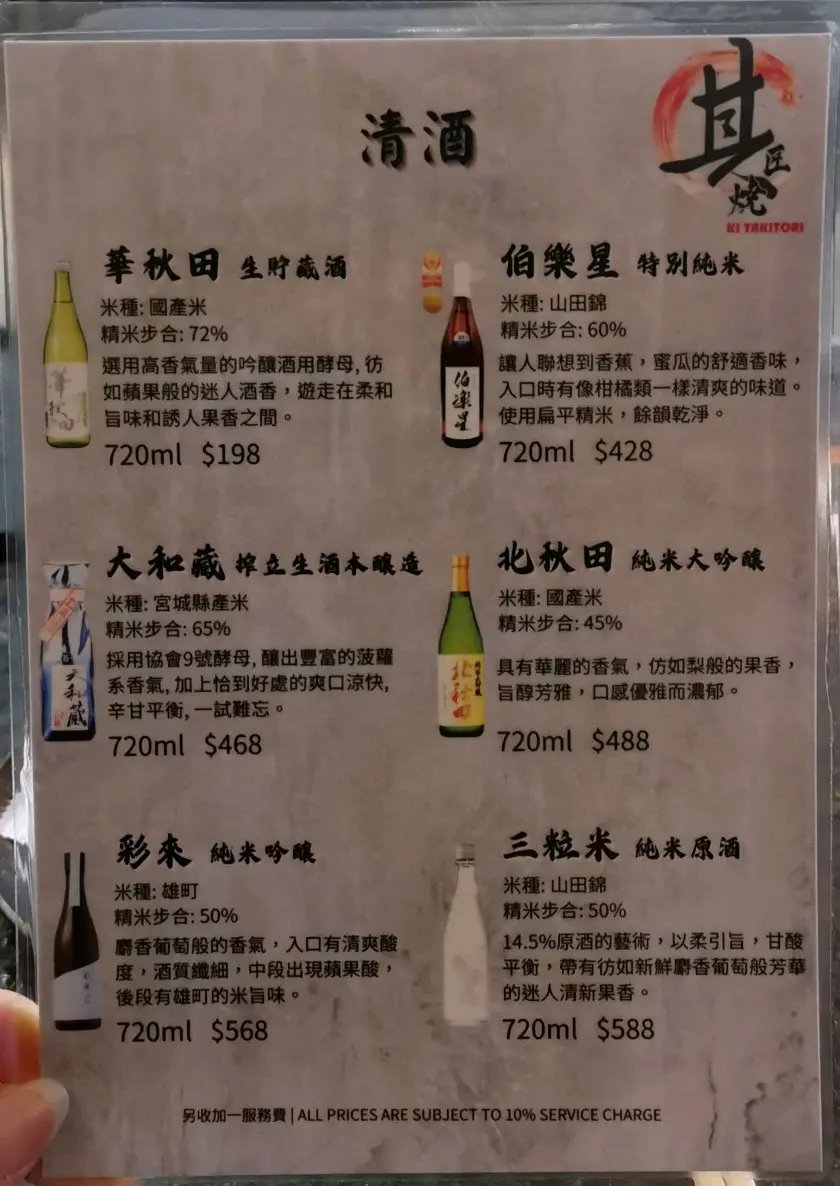 清酒
其
匠
燒
KI YAKITORI
華秋田 生貯藏酒
米種: 國產米
精米步合: 72%
選用高香氣量的吟釀酒用酵母, 彷
如蘋果般的迷人酒香，遊走在柔和
旨味和誘人果香之間。
720ml $198
華秋田
伯樂星 特別純米
米種: 山田錦
精米步合: 60%
讓人聯想到香蕉，蜜瓜的舒適香味，
入口時有像柑橘類一樣清爽的味道。
使用扁平精米，餘韻乾淨。
720ml $428
伯樂星
大和藏 搾立生酒本釀造
米種: 宮城縣產米
精米步合: 65%
採用協會9號酵母, 釀出豐富的菠蘿
系香氣, 加上恰到好處的爽口涼快,
辛甘平衡, 一試難忘。
720ml $468
大和藏
北秋田 純米大吟釀
米種: 國產米
精米步合: 45%
具有華麗的香氣，仿如梨般的果香，
旨醇芳雅，口感優雅而濃郁。
720ml $488
北秋田
彩來 純米吟釀
米種: 雄町
精米步合: 50%
麝香葡萄般的香氣，入口有清爽酸
度，酒質纖細，中段出現蘋果酸，
後段有雄町的米旨味。
720ml $568
三粒米 純米原酒
米種: 山田錦
精米步合: 50%
14.5%原酒的藝術，以柔引旨，甘酸
平衡，帶有彷如新鮮麝香葡萄般芳華
的迷人清新果香。
720ml $588
另收加一服務費 | ALL PRICES ARE SUBJECT TO 10% SERVICE CHARGE